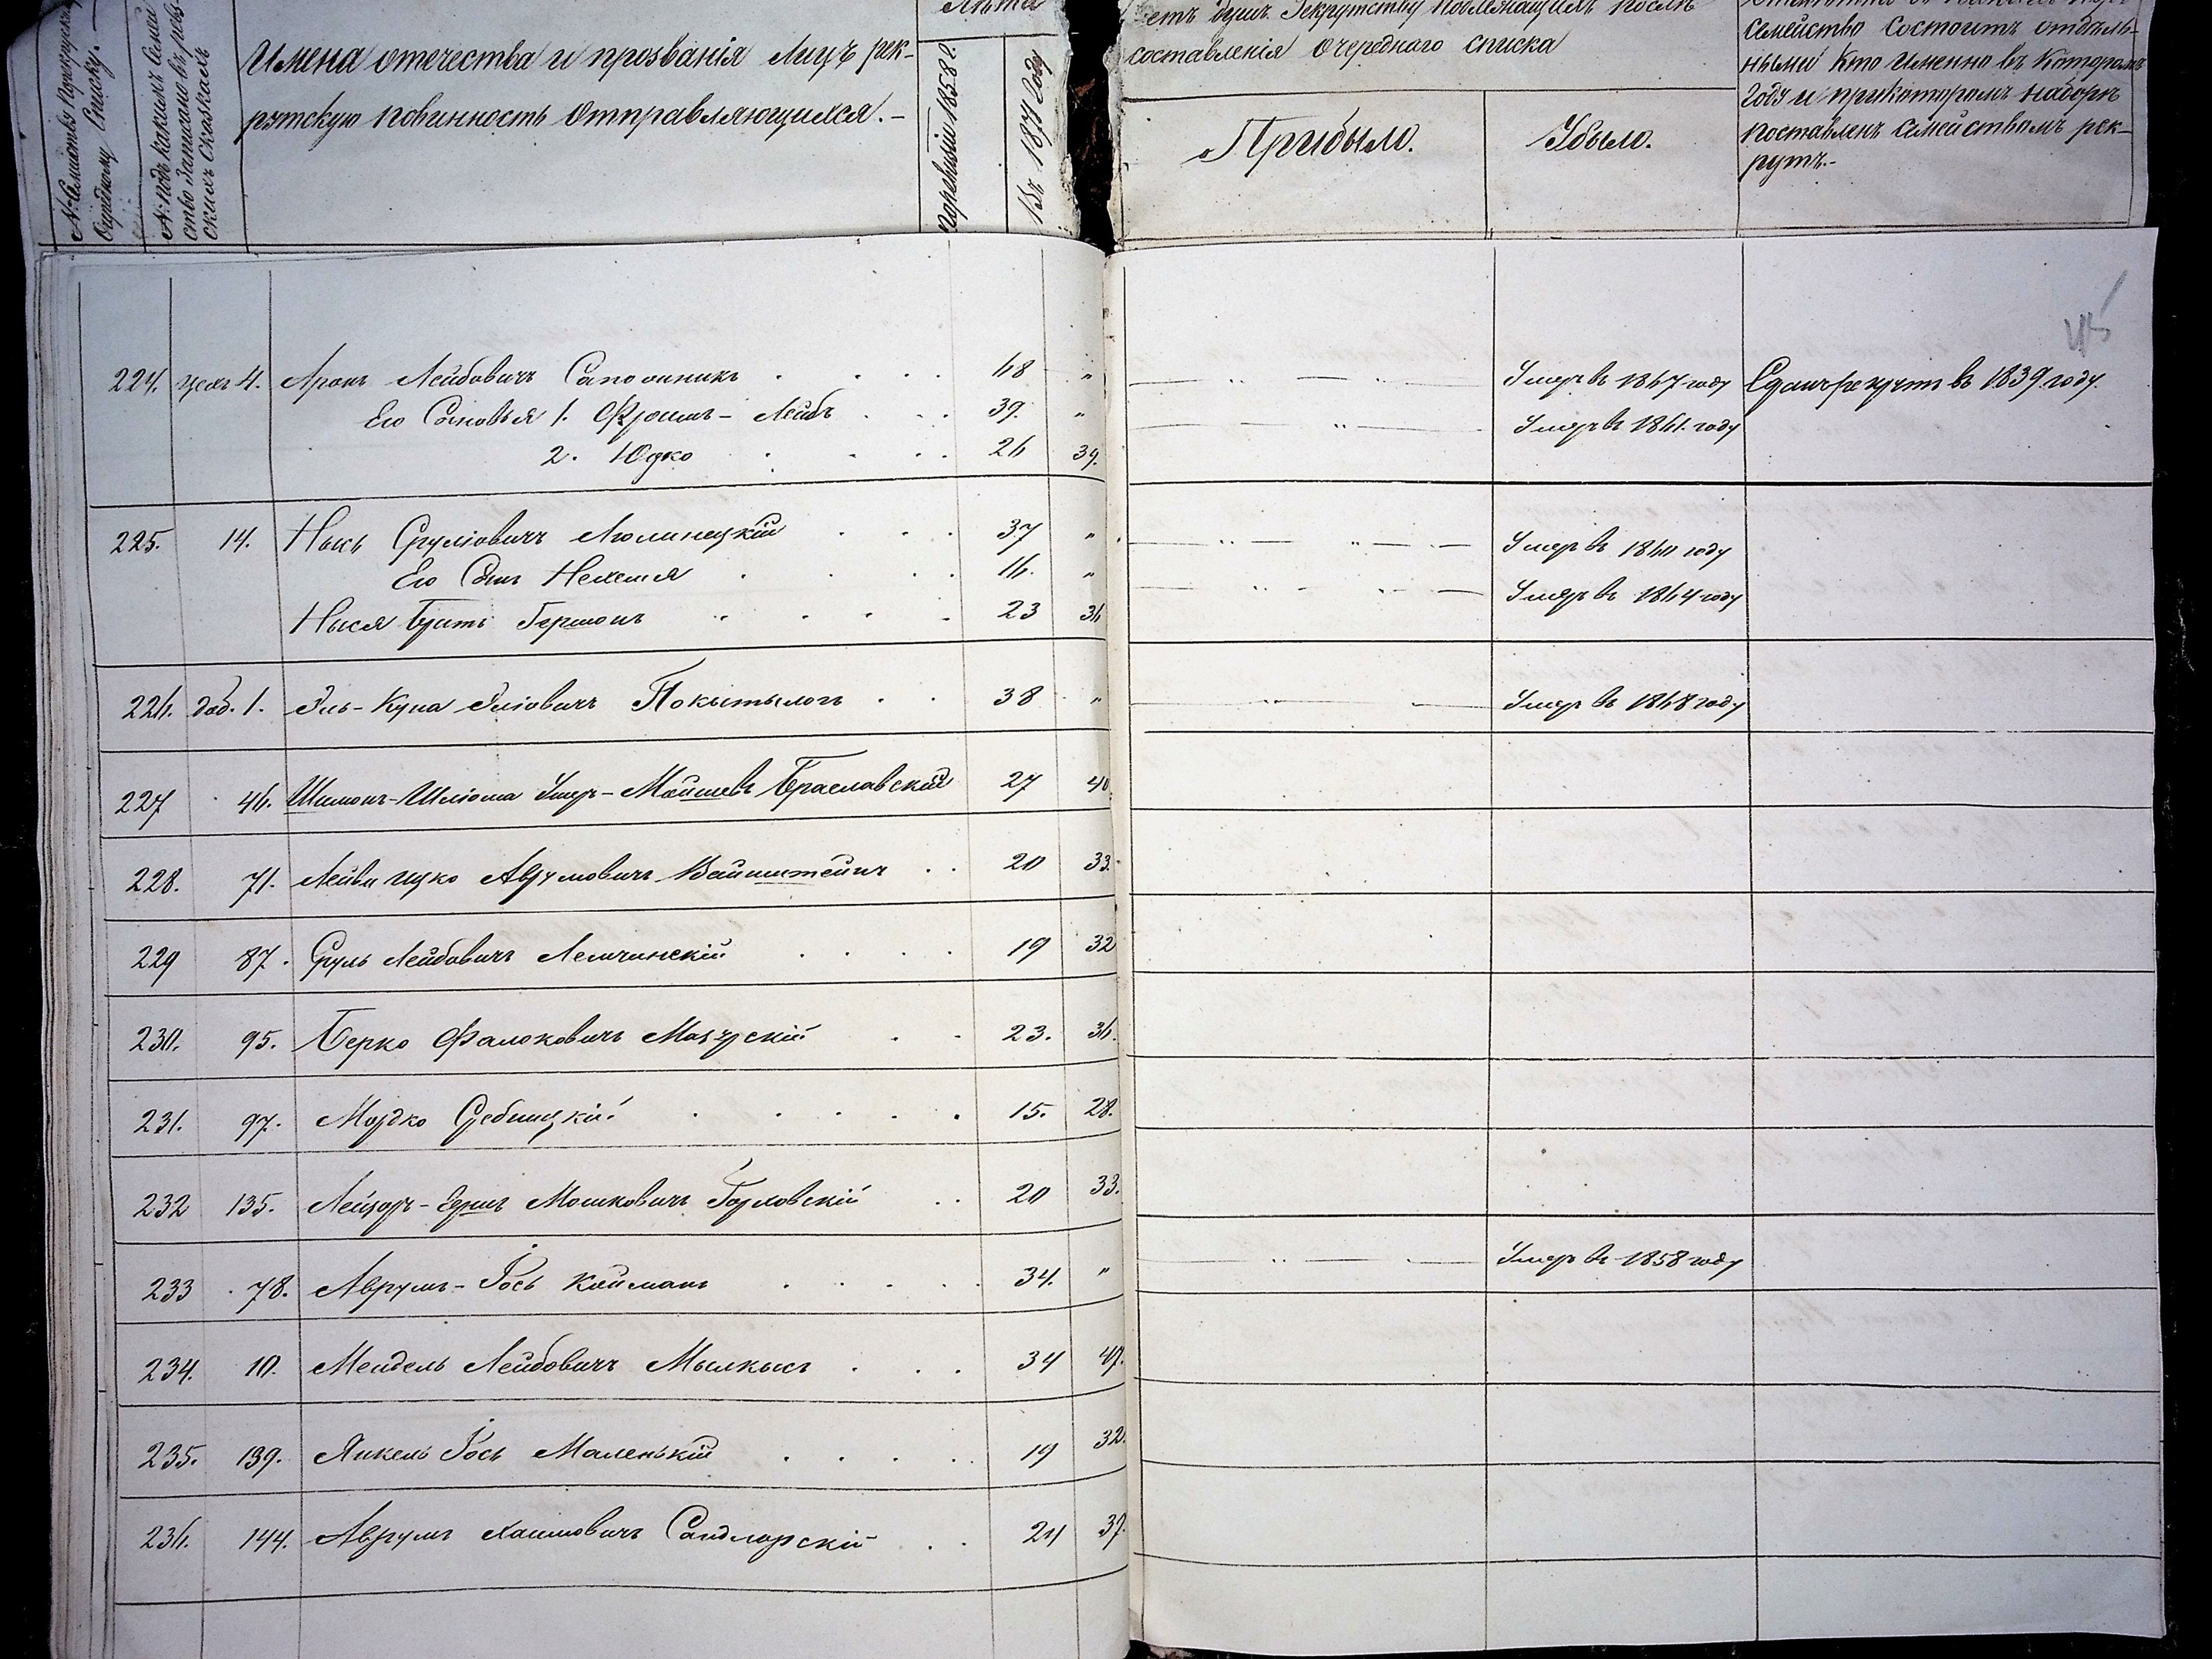 № Семейству по рекрутскому
Очередному Списку.
№ подъ какимъ Семей
ство записано въ реви-
скихъ сказкахъ
Имена отечества и прозванія лицъ рек-
рутскую повинность отправляющихся.-
Лѣта
по ревизіи 1858 г.
Въ 1871 году
етъ душъ рекрутству подлежащихъ послѣ
составленія очереднаго списка
Прибыло.
Убыло.
семейство состоитъ отдѣль-
нымъ кто именно въ которомъ
году и при которомъ наборѣ
поставленъ семействомъ рек-
рутъ.-
224. цехъ 4. Аронъ Лейбовичъ Сапожникъ 48 " Умеръ въ 1867 году Сданъ рекрутъ въ 1839 году.
Его Сыновья 1. Фроимъ-Лейбъ 39. " Умеръ въ 1861. году
2. Юдко 26 39.
225. 14. Нысь Сруліовичъ Люлинецкій 37 " Умеръ въ 1860 году
Его Сынъ Нехемя 16. " Умеръ въ 1864 году
Ныся Братъ Гершонъ 23 36
226. доб. 1. Эль-Куна Эліовичъ Покытылогъ 38 " Умеръ въ 1868 году
227 46. Шимонъ-Шліома Умер-Мошевъ Браславскій 27 40
228. 71. Лейви Ицко Аврумовичъ Вайнштейнъ 20 33.
229 87. Сруль Лейбовичъ Лемчинскій 19 32
230. 95. Берко Фалоковичъ Мазурскій 23. 36.
231. 97. Мордко Сребницкій 15. 28.
232 135. Лейзоръ-Гершъ Мошковичъ Горловскій 20 33.
233 78. Аврумъ-Іось Койманъ 34. " Умеръ въ 1858 году
234. 10. Мендель Лейбовичъ Мылкысъ 34 47.
235. 139. Янкель Іось Маленькій 19 32.
236. 144. Аврумъ Хаимовичъ Сандлярскій 24 37.